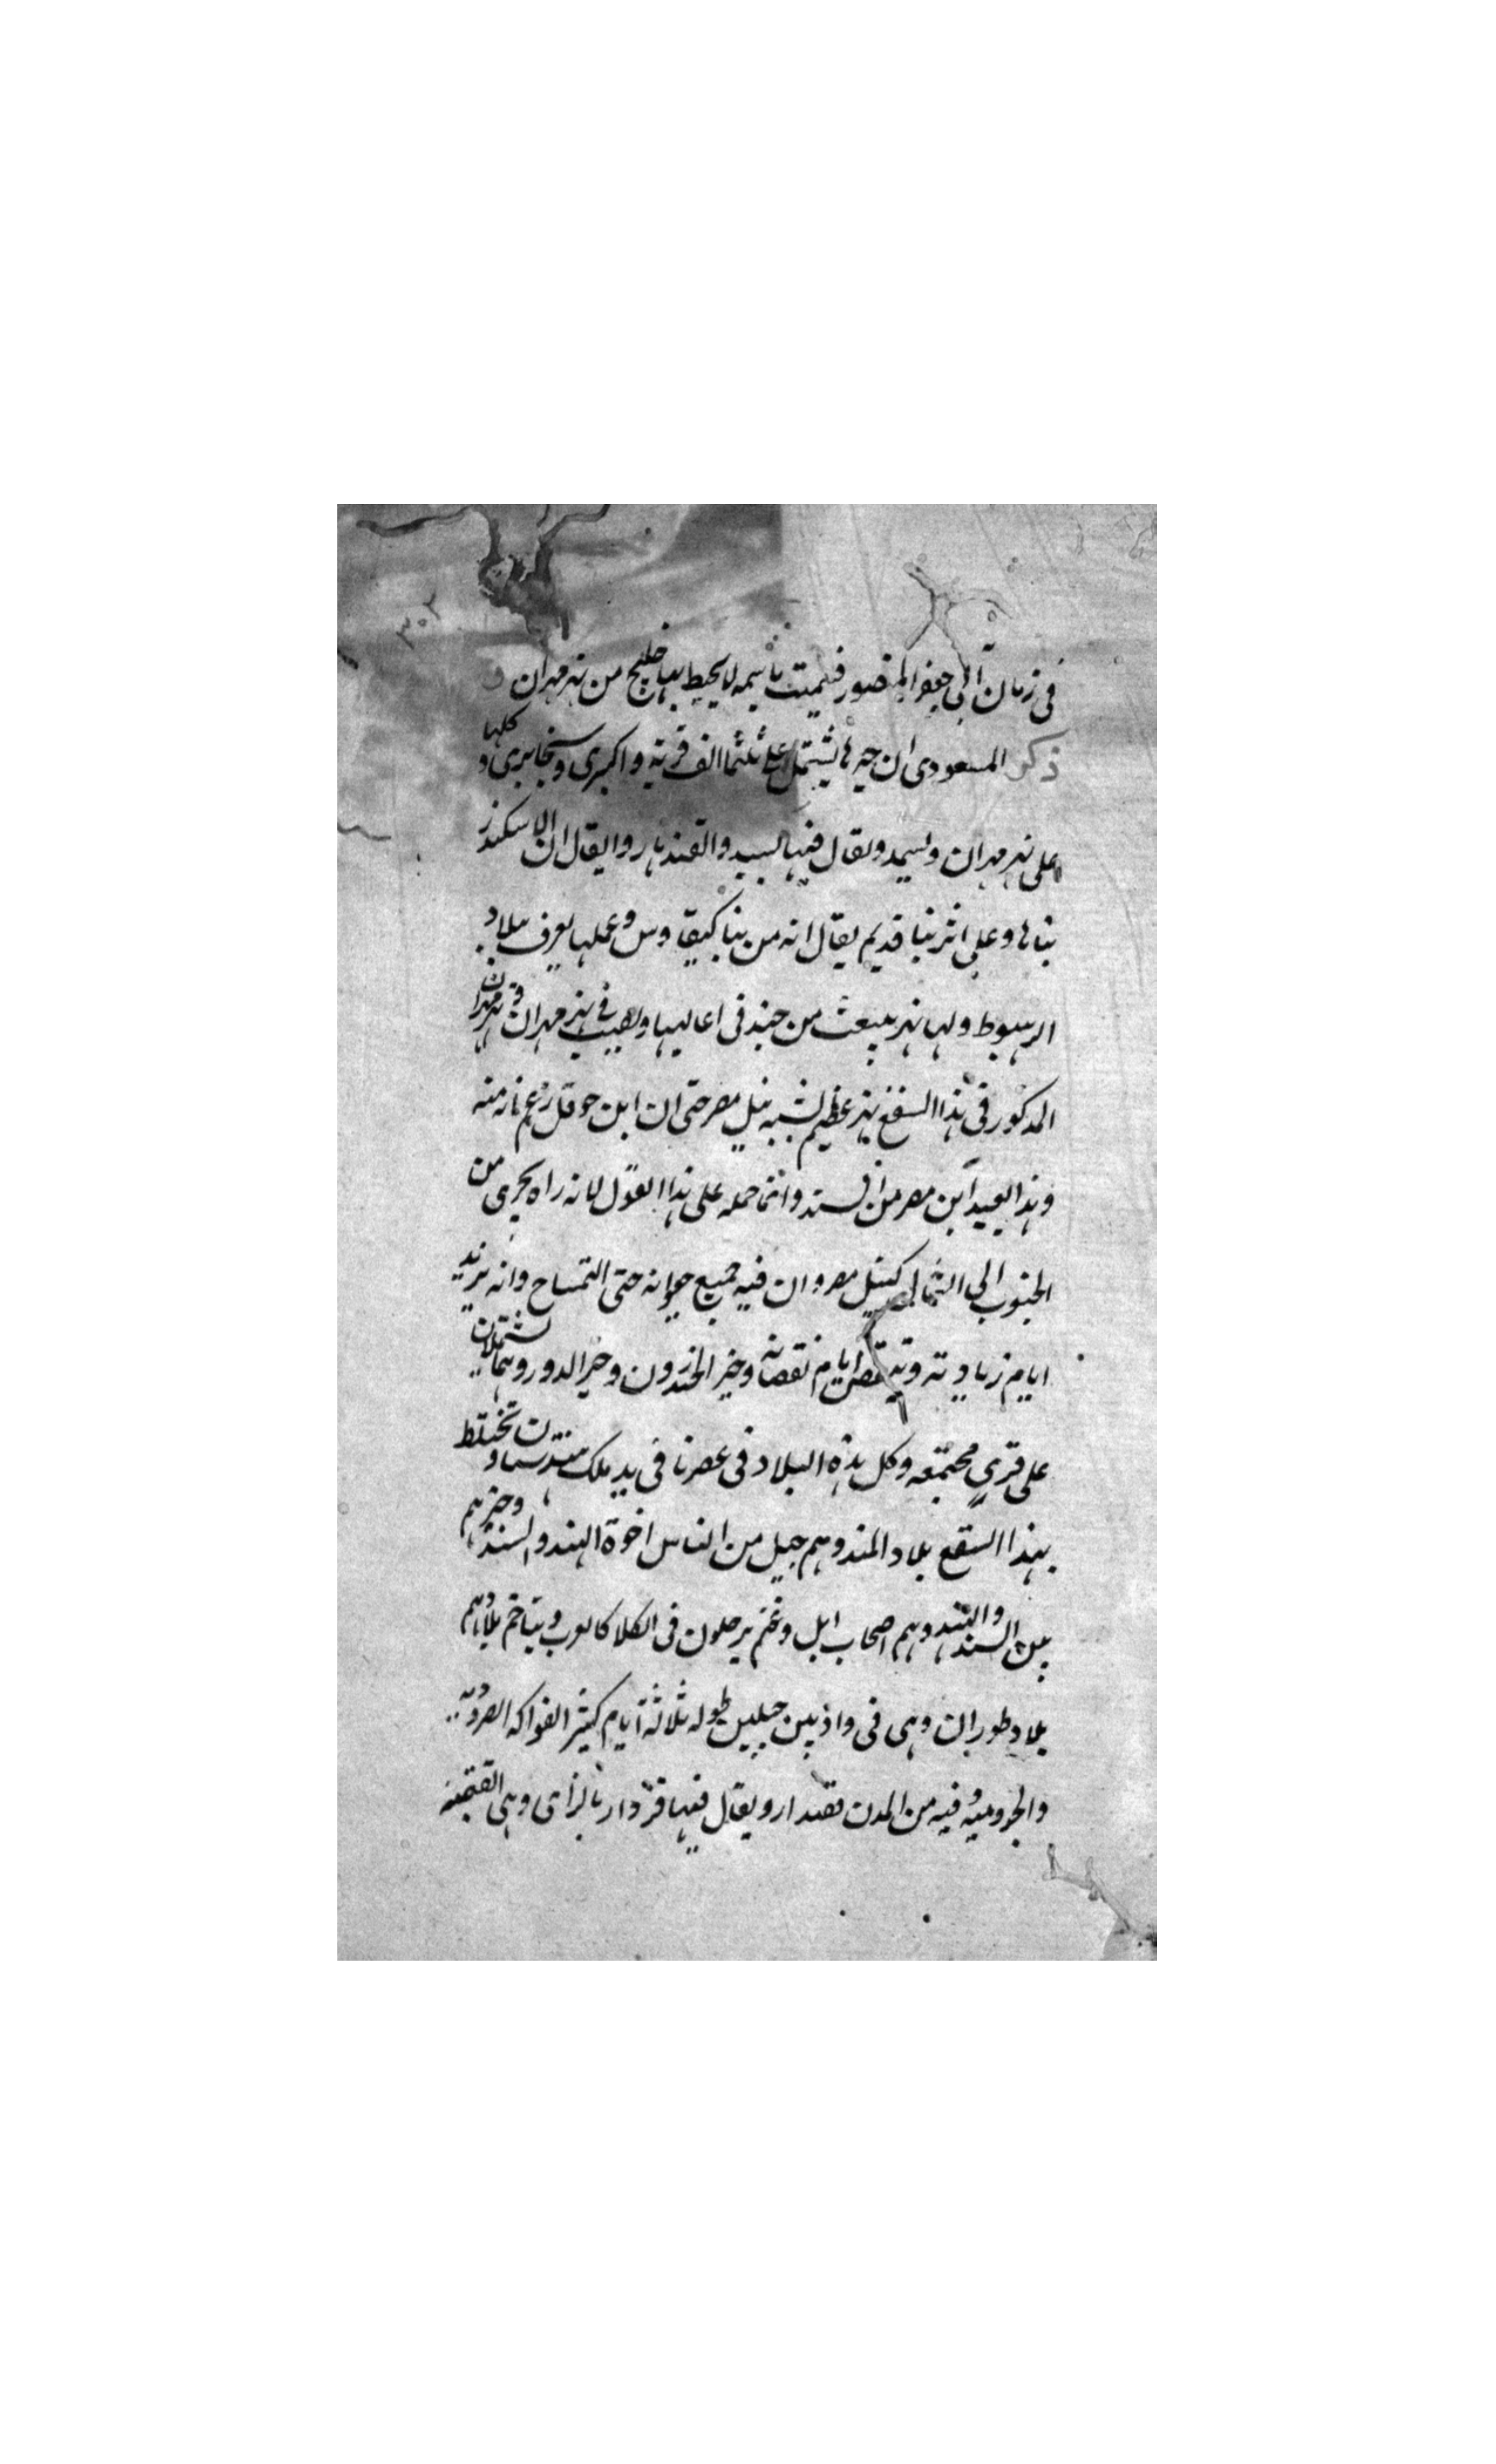 ٣٠٢
في زمان ابي جعفر المنصور فسميت باسمه لا يحيط بها خليج من نهر مهران و
ذكر المسعودي ان جيرها يشتمل على ثلثماالف قرية واكبرى وبخابرى وكلها
على نهر مهران وسيمد ويقال فيها السبد والقندهار وايقال ان الاسكندر
بناها وعلى اثر بنا قديم يقال انه من بنا كيقاوس وعملها يعرف ببلاد
الرهبوط ولها نهر ينبعث من جند في اعاليها ويصب في نهر مهران ونهر مهران
المذكور في هذا السقع نهر عظيم يشبه بنيل مصر حتى ان ابن حوقل زعم انه منه
وهذا بعيد اين مصر من السند وانما حمله على هذا القول لانه راه يجري من
الجنوب الى الشمال كنيل مصر وان فيه جميع حيوانه حتى التمساح وانه يزيد
ايام زيادته وينقص ايام نقصانه وخير الخزرون وخير الدور وهما يشتملان
على قرى مجتمعه وكل هذه البلاد في عصرنا في يد ملك وتختلط
بهذا السقع بلاد المند وهم جيل من الناس اخوة الهند والسند وحيزهم
بين السند والهند وهم اصحاب ابل وغنم يرحلون في الكلا كالعرب ويتاخم بلادهم
بلاد طوران وهي في واد بين جبلين طوله ثلاثة ايام كثير الفواكه الصروديه
والجروميه وفيه من المدن قصدار ويقال فيها قزدار بالزاى وهي القصبه